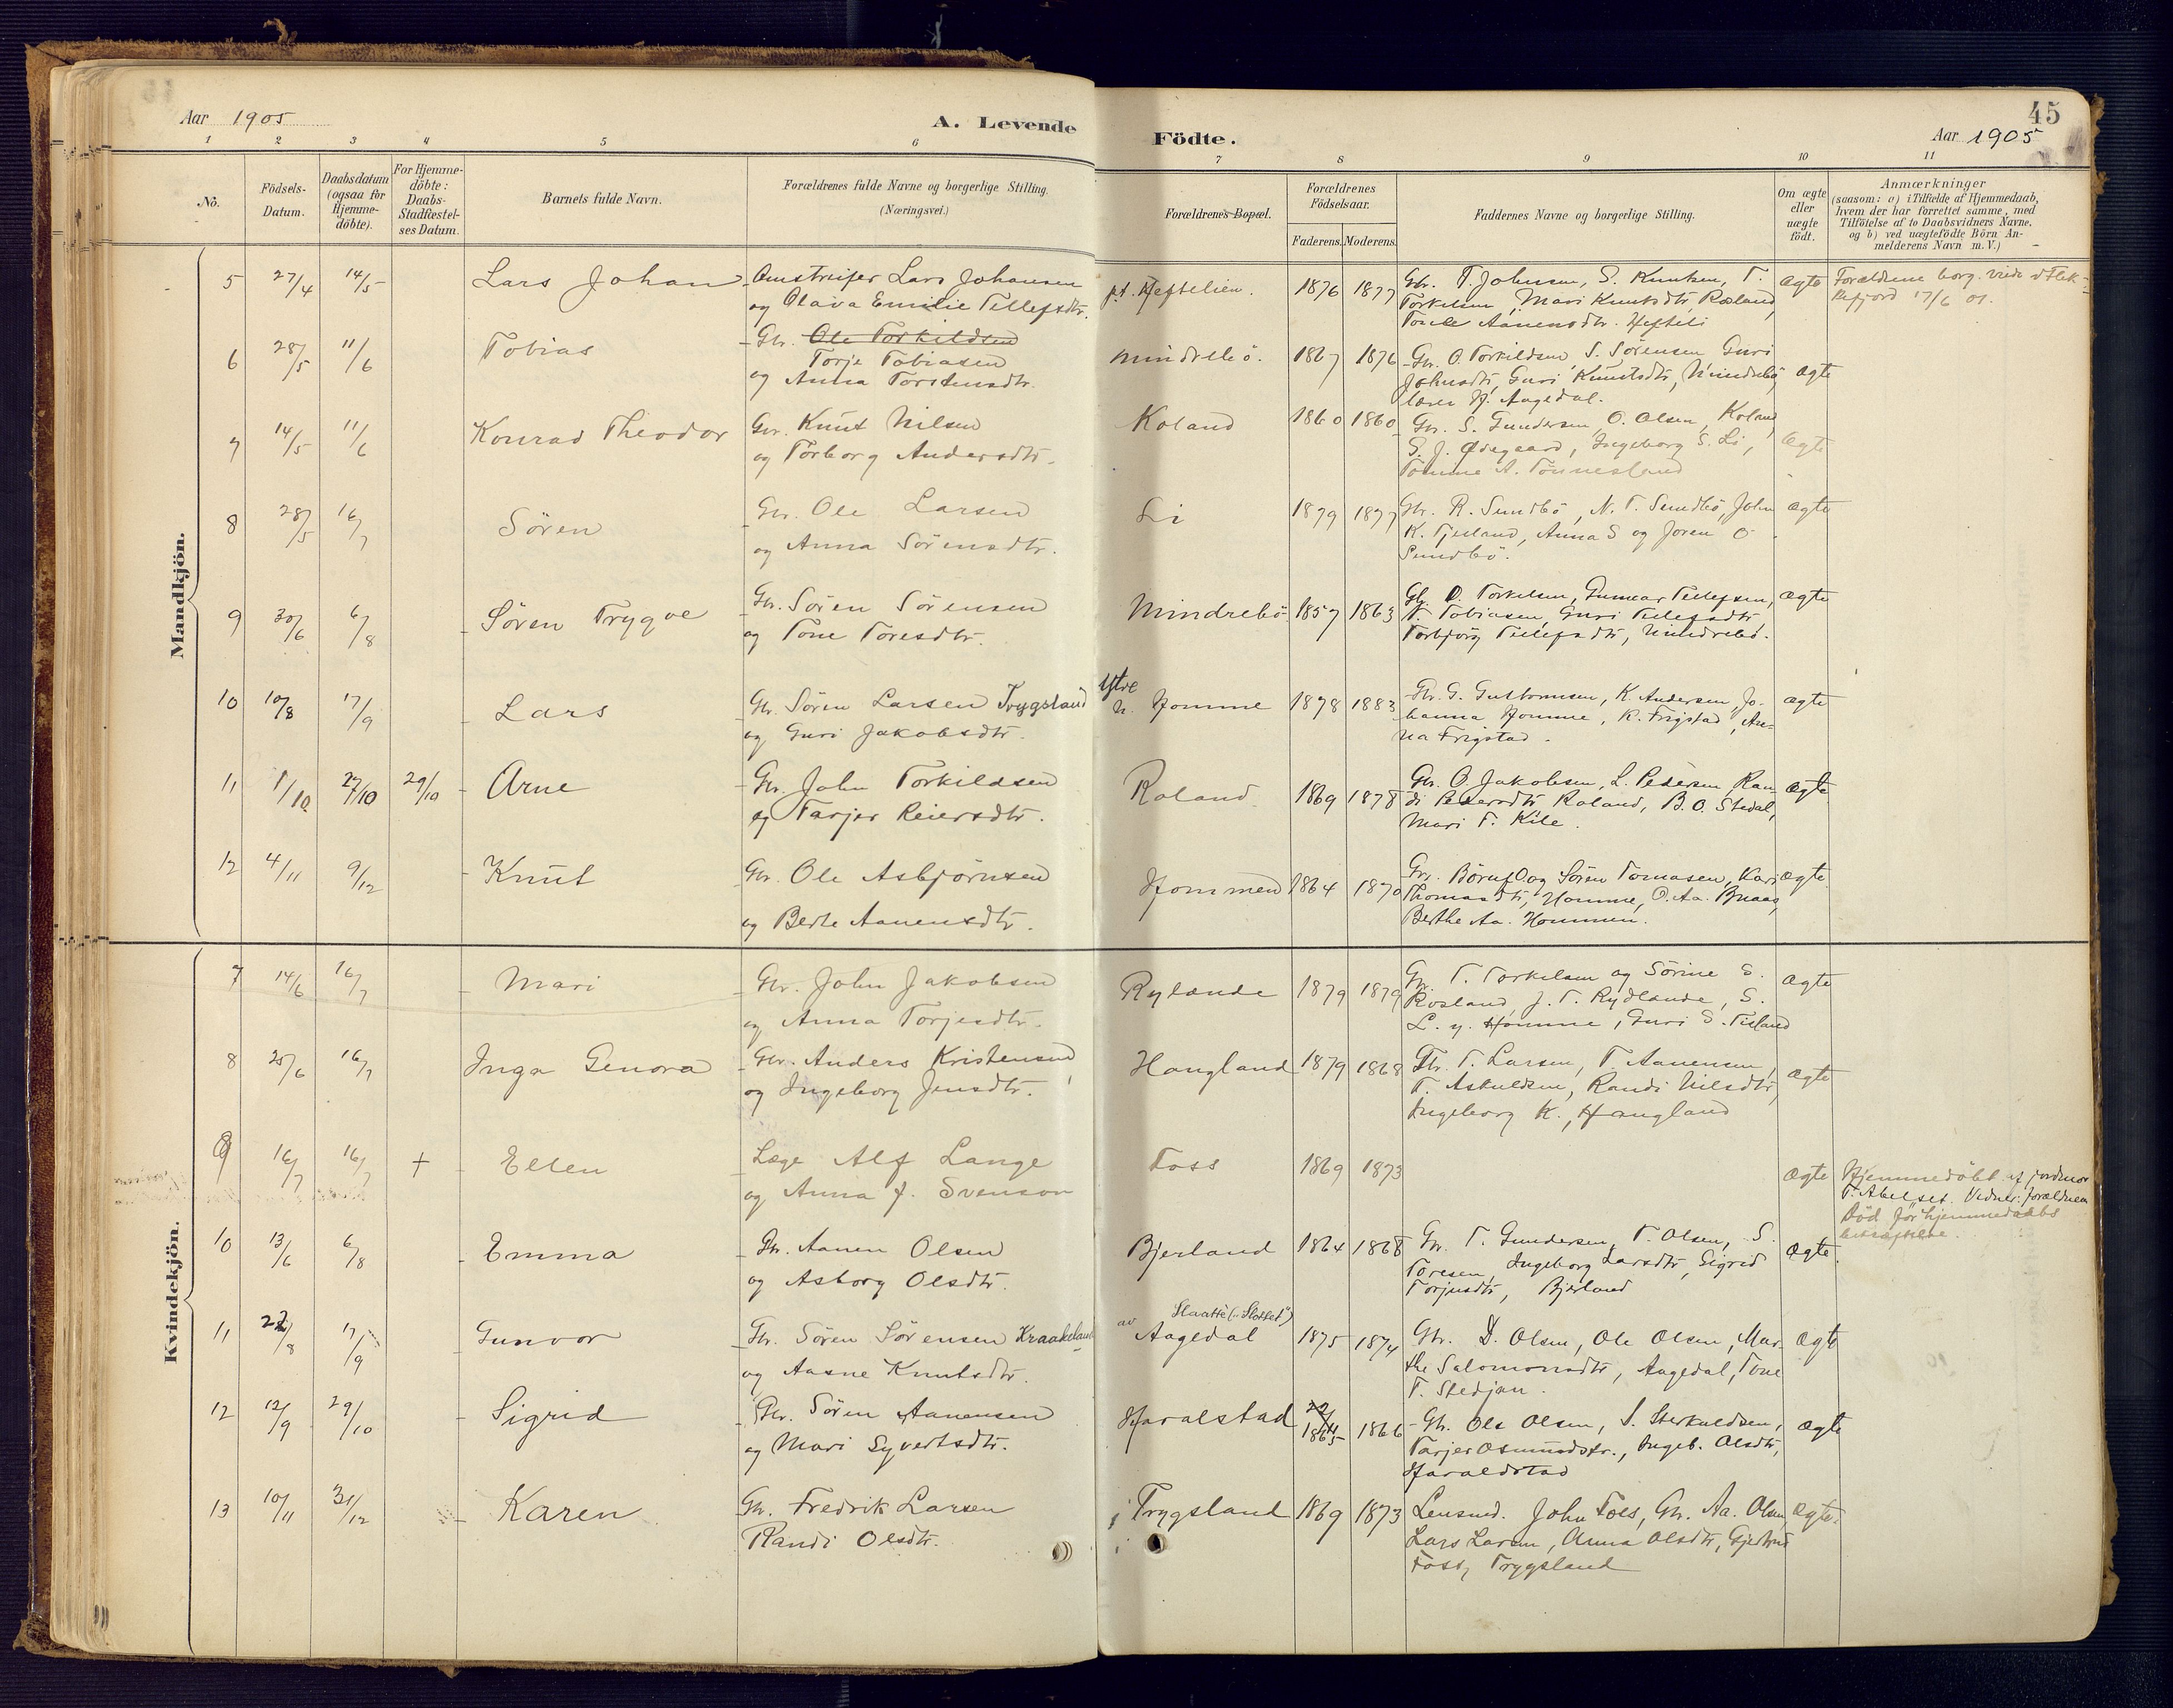 Aar 1905
A. Levende Födte.
45
Aar 1905
1 2 3 4 5 6 7 8 9 10 11
No.
Födsels-Datum.
Daabsdatum (ogsaa for Hjemme-döbte).
For Hjemme-döbte: Daabs-Stadfæstel-ses Datum.
Barnets fulde Navn.
Forældrenes fulde Navne og borgerlige Stilling. (Næringsvei.)
Forældrenes Bopæl.
Forældrenes Födselsaar.
Faderens. Moderens.
Faddernes Navne og borgerlige Stilling.
Om ægte eller uægte födt.
Anmærkninger
(saasom: a) i Tilfælde af Hjemmedaab,
hvem der har forrettet samme, med
Tilföielse af to Daabsvidners Navne.
og b) ved uægtefödte Börn An-
melderens Navn m. V.)
Mandkjön.
5 27/4 14/5 Lars Johan Omstreifer Lars Johansen p.t. Heftelien. 1876 1877 Gbr. T. Johnsen, S. Knutsen, T. ægte Forældrene borg. viede i Flek-
og Olava Emilie Tellefsdtr. Torkelsen, Mari Knutsdtr, Røsland, kefjord 17/6 01.
Aanensdtr. Hefteli
6 28/5 11/6 Tobias Gbr. Ole Torkildsen Mindrebö. 1867 1876 Gbr. O. Torkildsen, S. Sørensen, Guri
Torje Tobiasen Johnsdtr, Guri Knutsdtr, Mindrebö ægte
og Anna Torstensdtr. lærer H. Aagedal.
7 14/5 11/6 Konrad Theodor Gbr. Knut Nilsen Koland 1860 1860 Gbr. S. Gundersen, O. Olsen, Koland
og Torborg Andersdtr. S. J. Ødegaard, Ingeborg S. Li, ægte
A. Tönnesland
8 28/5 16/7 Sören Gbr. Ole Larsen Li 1879 1877 Gbr. R. Sundbö, N. T. Sundbö, John ægte
og Anna Sörensdtr. K. Tjesland, Anna S og Joren O
Sundbö.
9 30/6 6/8 Sören Trygve Gbr. Sören Sörensen Mindrebö 1857 1863 Gbr. O. Torkelsen, Gunnar Tellefsen, ægte
og Tone Toresdtr. T. Tobiasen, Guri Tellefsdtr,
Torbjörg Tellefsdtr, Mindrebö.
10 10/8 17/9 Lars Gbr. Sören Larsen Trygsland Ytre Homme 1878 1883 Gbr. G. Guttormsen, K. Andersen, Jo- ægte
og Guri Jakobsdtr. hanna Homme, K. Frigstad, An-
na Frigstad.
11 1/10 27/10 29/10 Arne Gbr. John Torkildsen Roland 1869 1878 Gbr. O. Jakobsen, L. Pedersen, Ran- ægte
og Tarjer Reiersdtr. di Pedersdtr Roland, B. O. Stedal,
Mari T. Kile.
12 4/11 9/12 Knut Gbr. Ole Asbjörnsen Hommen 1864 1870 Gbr. Böruf O. og Sören Tomasen, Kari ægte
og Berte Aanensdtr. Thomasdtr, Homme, O. Aa.
Berthe Aa. Hommen.
Kvindekjön.
7 14/6 16/7 Mari Gbr. John Jakobsen Rylande 1879 1879 Gbr. T. Torkelsen og Sörine S. ægte
og Anna Torjesdtr. Rosland, J. T. Rydlande, S.
L. y. Homme, Guri S.
8 25/6 16/7 Inga Genora Gbr. Anders Kristensen Haugland 1879 1868 Gbr. T. Larsen, T. Aanensen,
og Ingeborg Jensdtr. T. Askildsen, Randi Nilsdtr, ægte
Ingeborg K., Haugland
9 16/7 16/7 + Ellen Læge Alf Lange Foss 1869 1873 ægte Hjemmedöbt af jordmor
og Anna J. Svenson T. Abelset. Vidner: forældrene
Död för hjemmedaabs
bekræftelse.
10 13/6 6/8 Emma Gbr. Aanen Olsen Bjerland 1864 1868 Gbr. T. Gundersen, T. Olsen, S.
og Asborg Olsdtr. Toresen, Ingeborg Larsdtr, Sigrid ægte.
Torjusdtr, Bjerland
11 22/8 17/9 Gunvor Gbr. Sören Sörensen Kraakeland av Slaatte ("Slottet")
og Aasne Knutsdtr. Aagedal 1875 1874 Gbr. D. Olsen, Ole Olsen, Mar- ægte
the Salomonsdtr, Aagedal, Tone
T. Stedjan.
12 12/9 29/10 Sigrid Gbr. Sören Aanensen Haralstad 22/4 1865 1866 Gbr. Ole Olsen, S. Sterkuldsen, ægte
og Mari Syvertsdtr. Tarjer Osmundsdtr., Ingeb. Olsdtr,
Haraldstad
13 10/11 31/12 Karen Gbr. Fredrik Larsen Trygsland 1869 1873 Lensmd. John Foss, Gbr. Aa. Olsen ægte.
Randi Olsdtr. Lars Larsen, Anna Olsdtr, Gjertrud
Foss, Trygsland